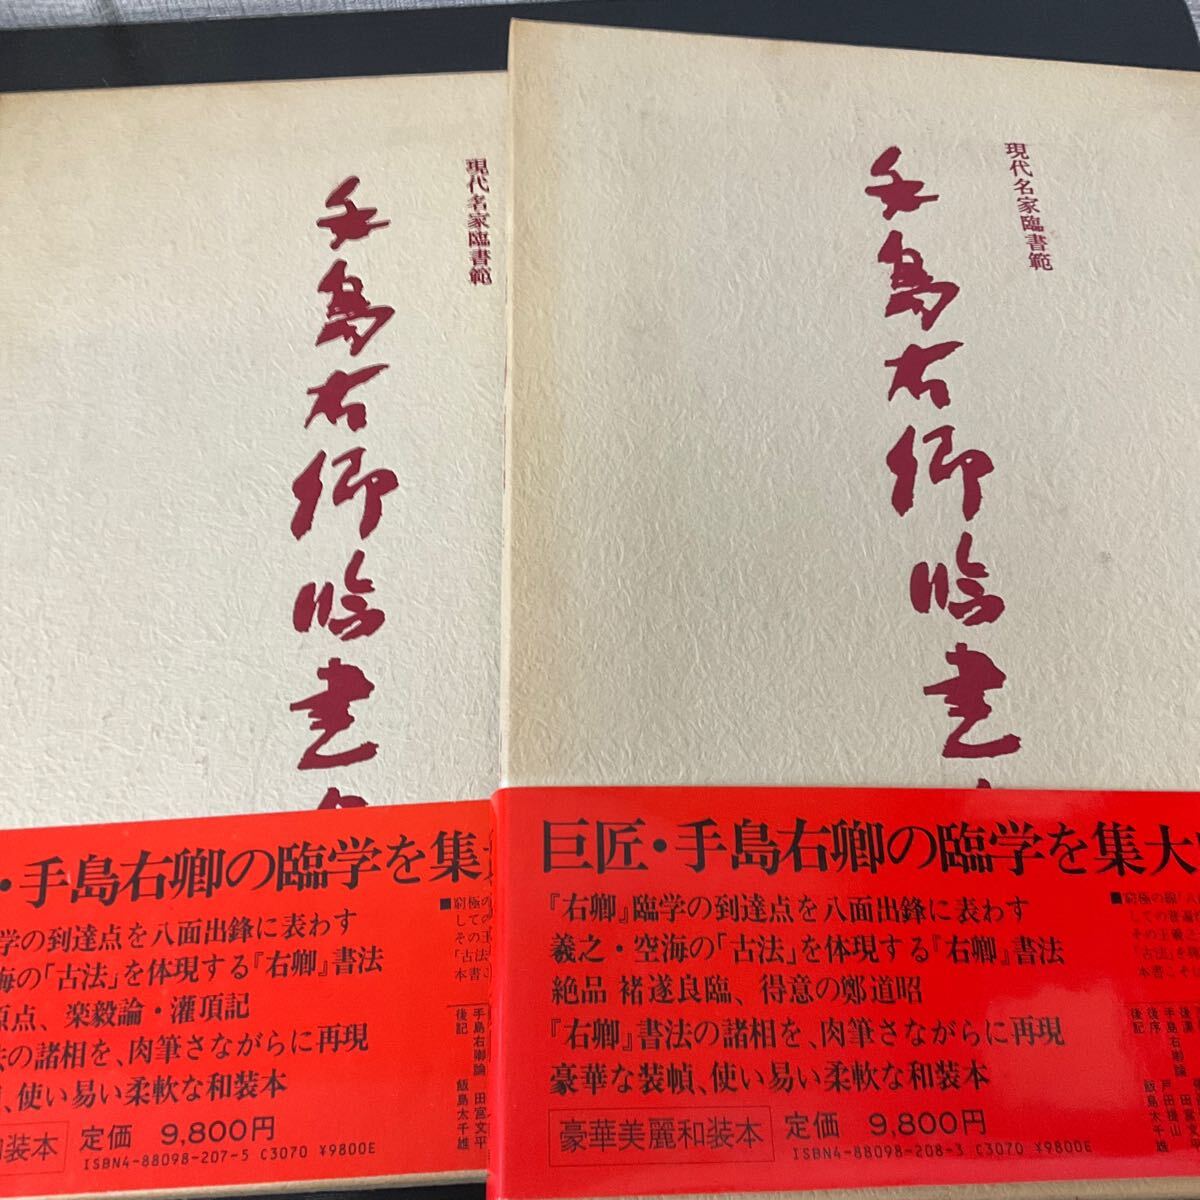 現代名家臨書範
手島右卿臨書
・手島右卿の臨学を集
学の到達点を八面出鋒に表わす
海の「古法」を体現する『右卿』書法
原点、楽毅論・灌頂記
法の諸相を、肉筆さながらに再現
、使い易い柔軟な和装本
和装本
定価 9,800円
ISBN4-88098-207-5 C3070 ¥9800E
手島右卿論 田宮文平
後記 飯島太千雄
現代名家臨書範
手島右卿臨書
巨匠・手島右卿の臨学を集大
『右卿』臨学の到達点を八面出鋒に表わす
羲之・空海の「古法」を体現する『右卿』書法
絶品 褚遂良臨、得意の鄭道昭
『右卿』書法の諸相を、肉筆さながらに再現
豪華な装幀、使い易い柔軟な和装本
豪華美麗和装本
定価 9,800円
ISBN4-88098-208-3 C3070 ¥9800E
手島右卿論 田宮文
後序 戸田提山
後記 飯島太千雄